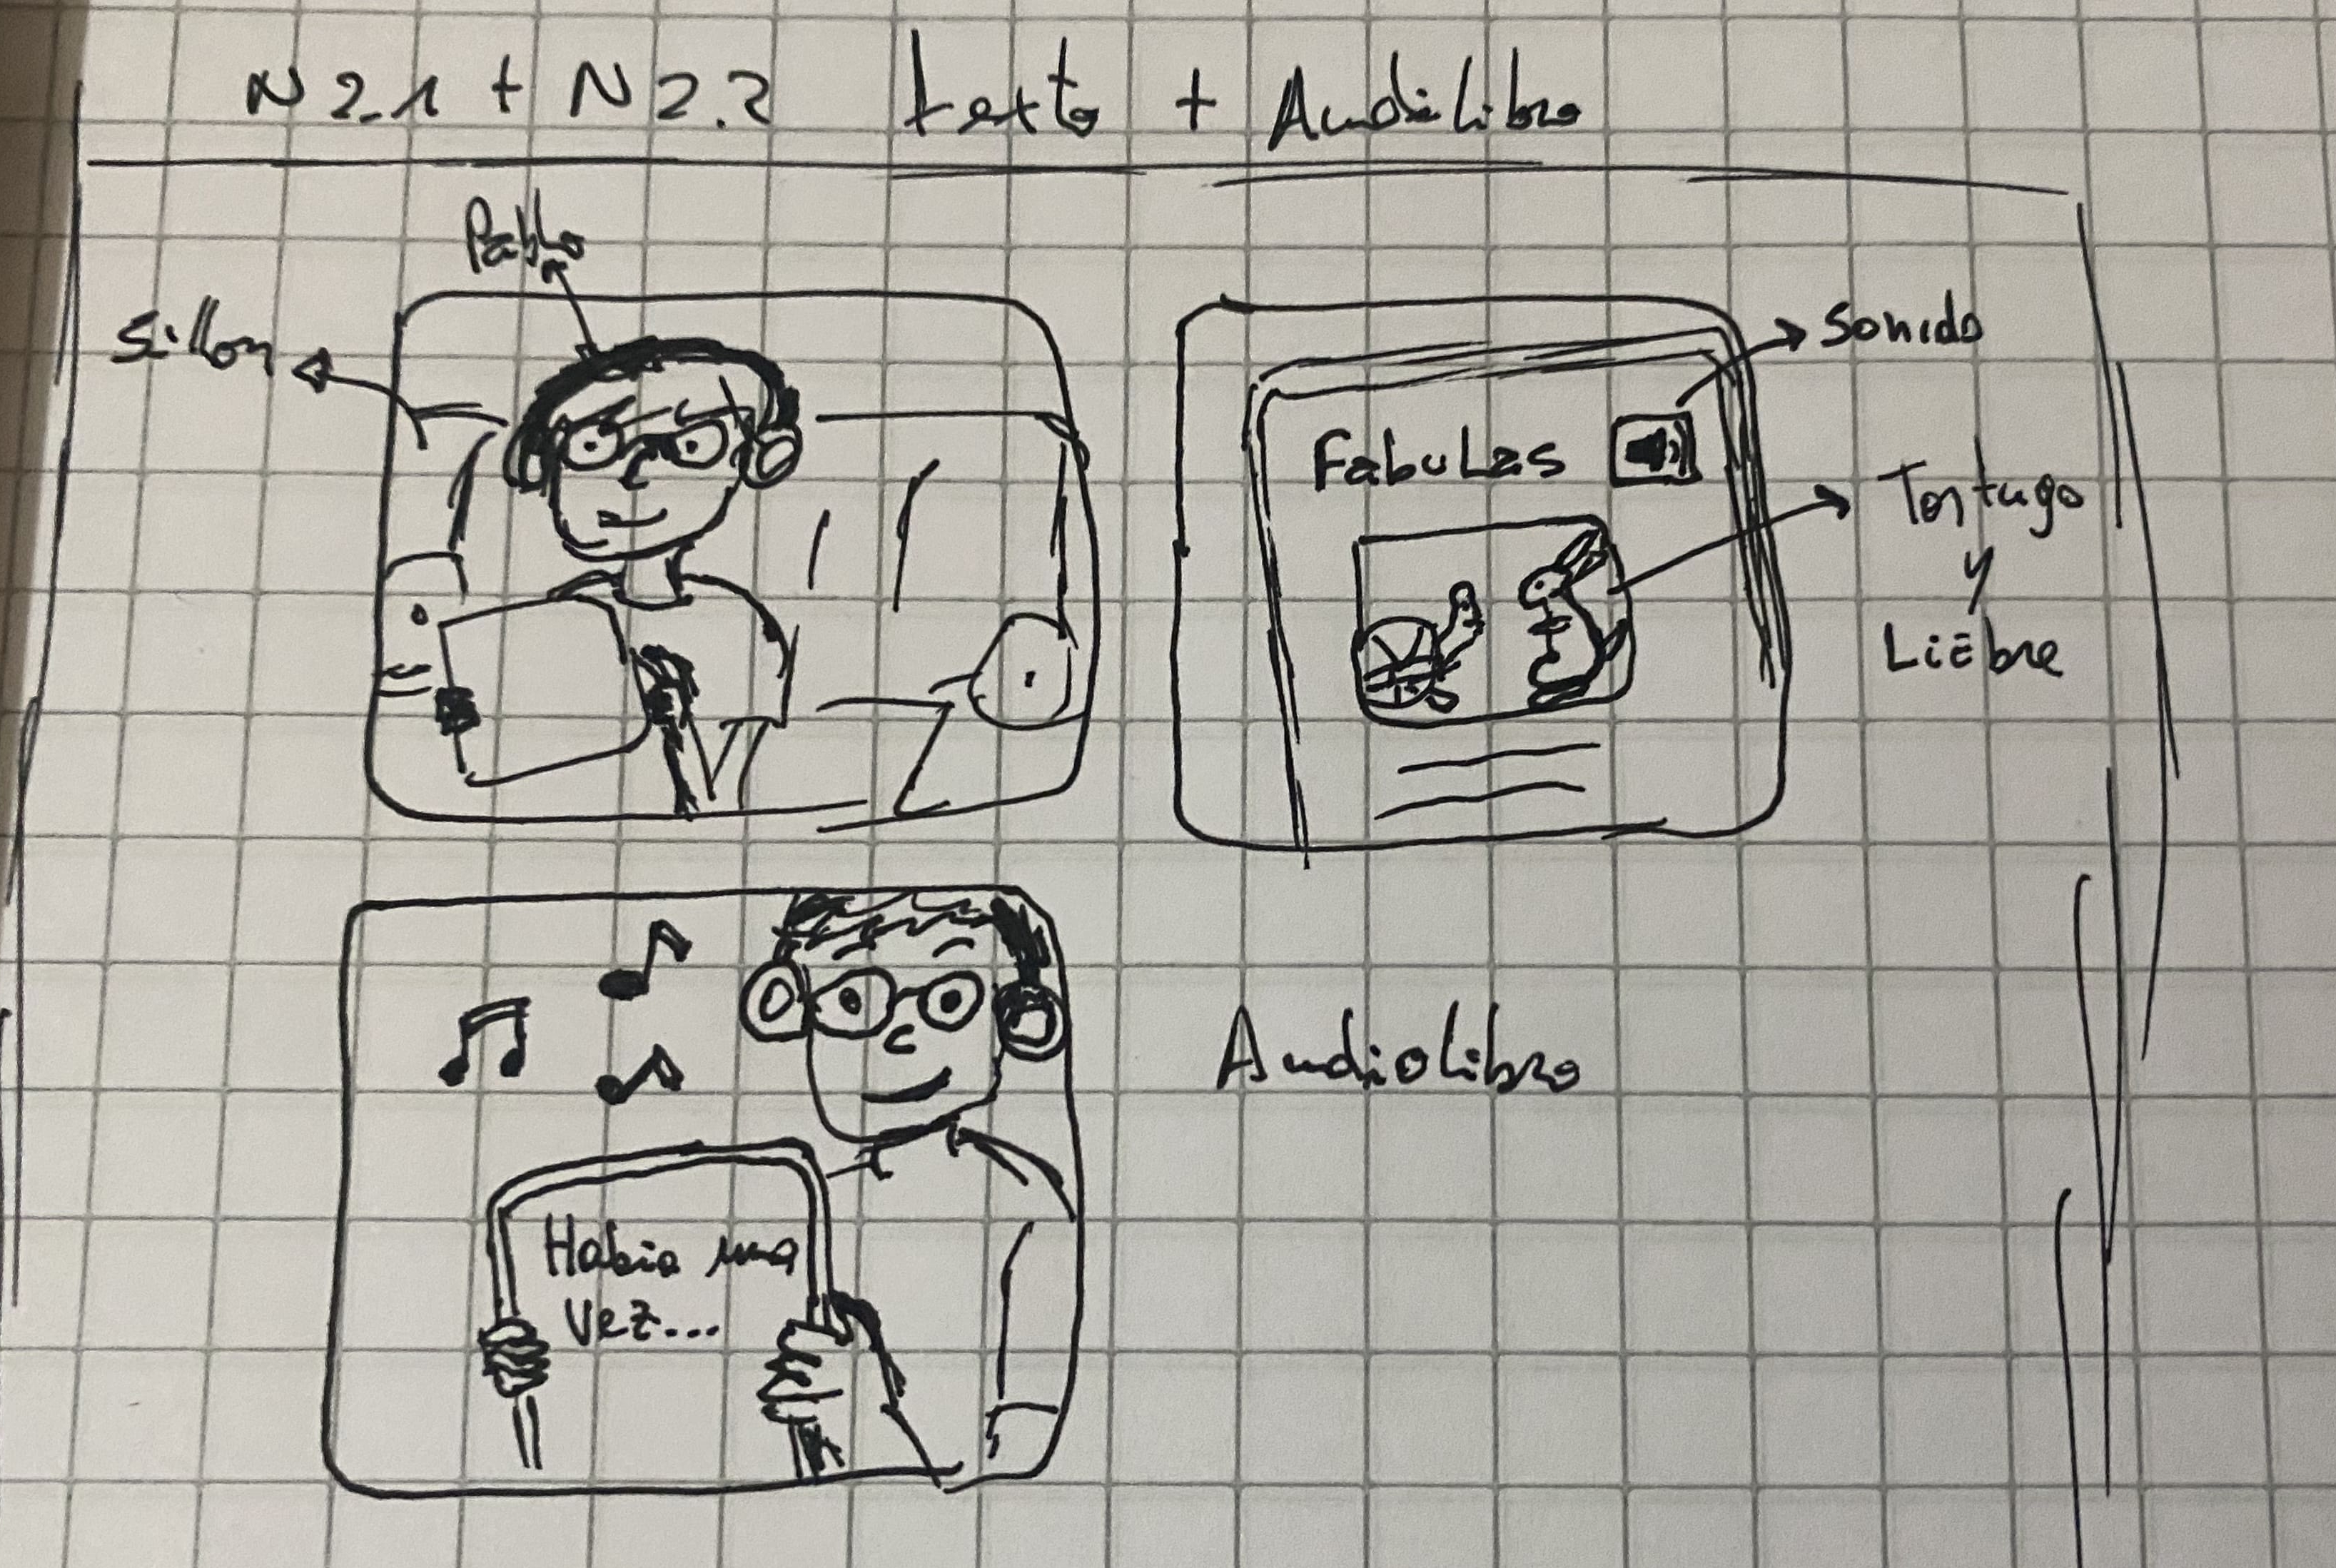 N2.1 + N2.2 texto + Audiolibro
Pablo
Sillon
Fabulas
Sonido
Tortuga
y
Liebre
Audiolibro
Habia una
vez...